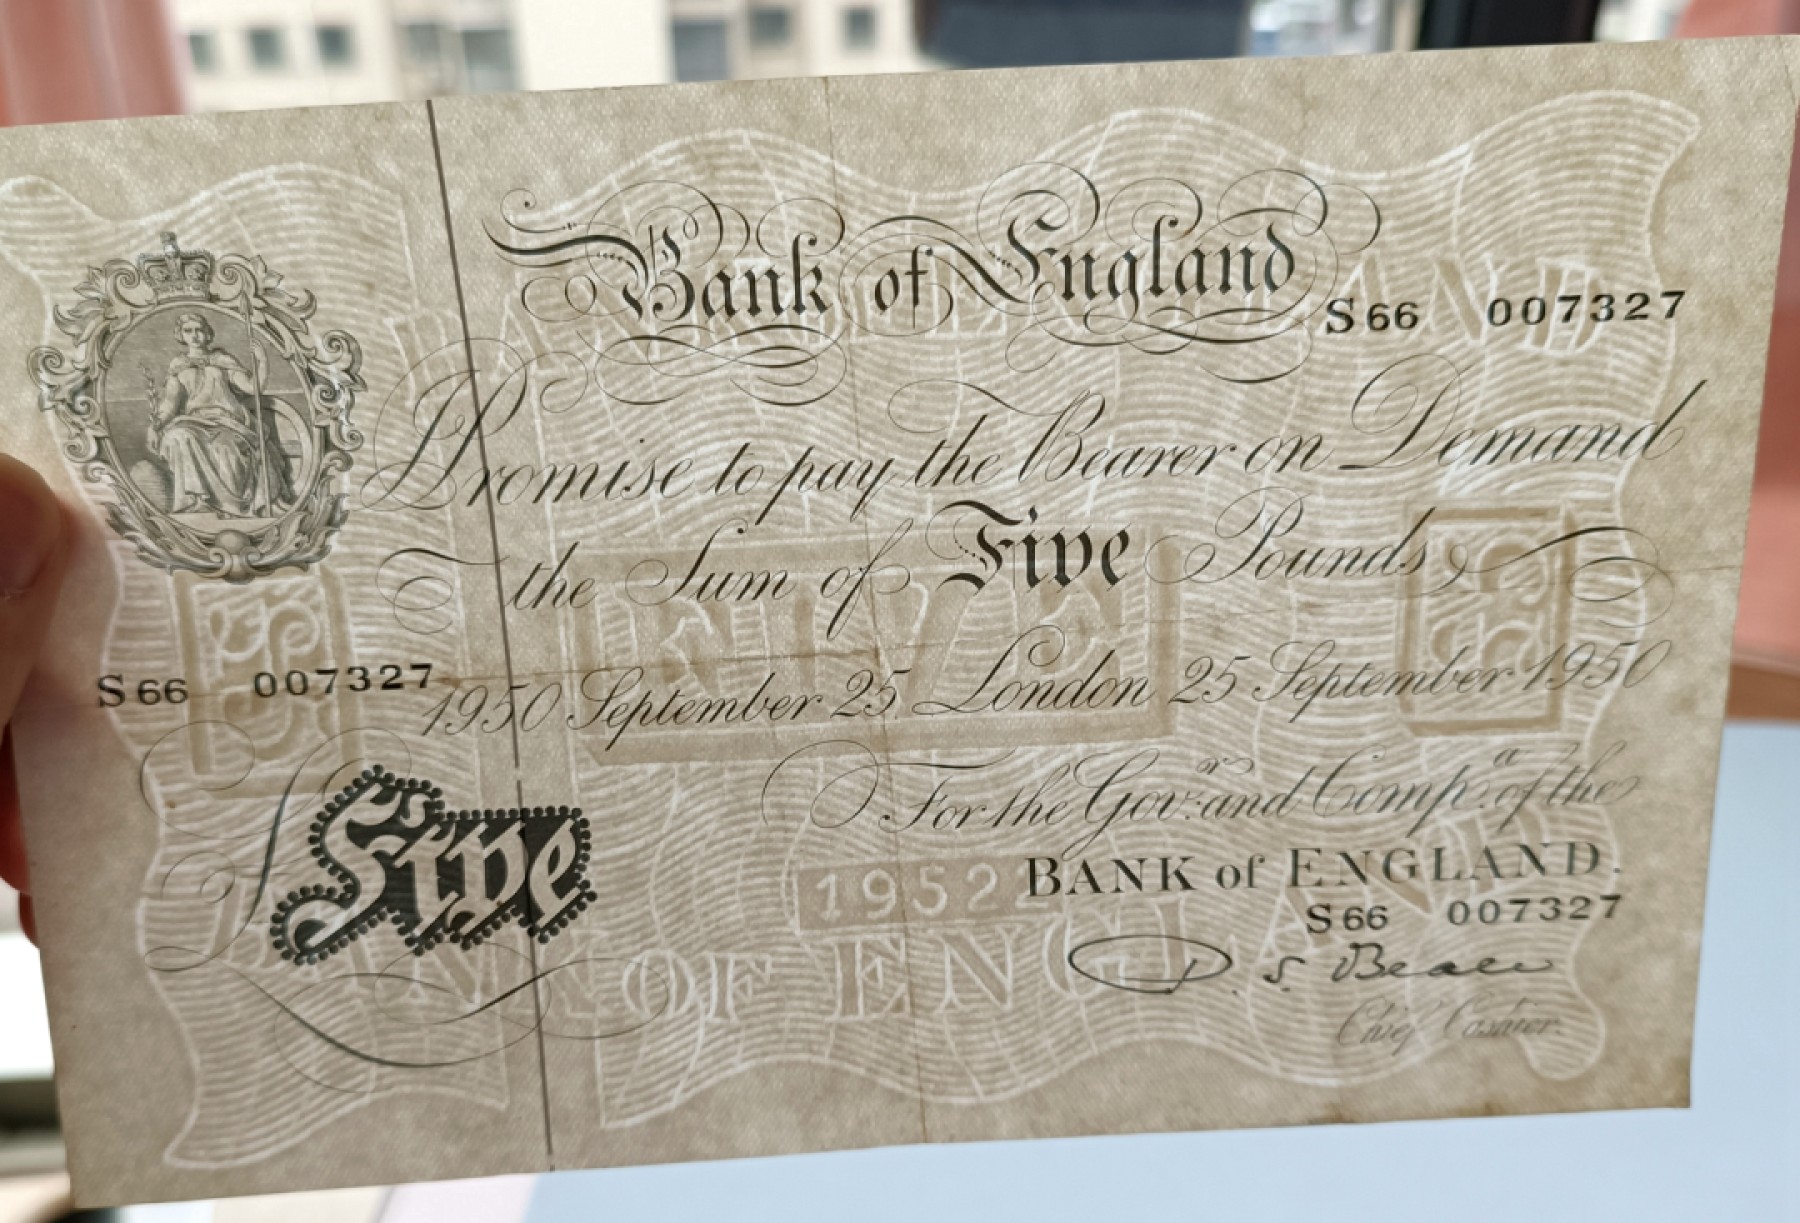 Bank of England
S66 007327
I Promise to pay the Bearer on Demand
the Sum of Five Pounds
S66 007327
1950 September 25 London 25 September 1950
For the Gov.r and Comp.a of the
£ Five
BANK of ENGLAND.
S66 007327
D. S. Beale
Chief Cashier.
BANK OF ENGLAND
5
FIVE
5
1952
BANK OF ENGLAND